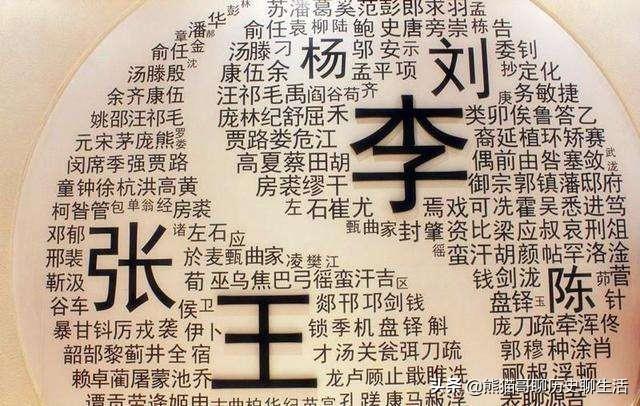 彭彭林
潘华郝
苏潘葛奚范彭郎
求羽孟
俞任袁柳陆鲍史唐旁崇栋告
童金沈
俞任
汤滕刁
邬安示
委钊
汤滕殷
康伍余
杨
孟平项
刘
抄定化
余齐康伍
汪祁毛禹阎谷荀齐
庚务敏捷
姚邵汪祁毛
庞林纪舒屈禾
李
类卯俟鲁答乙
元宋茅庞熊罗娄
贾路娄危江
裔延植环矫赛
闵席季强贾路
高夏蔡田胡
偶前由昝塞敛武泷
童钟徐杭洪高黄
房裘缪干
御宗郭镇藩邸府
柯昝管包单翁经房裘
左石崔尤
焉戏可冼霍吴悉进笃
甄曲家封肇资比梁应叔哀刑俎
邓郁
诸左石应
邢裴
张
於麦甄曲家凌樊江
徭蛮汗胡颜帖罕洛淦
靳汲
荀巫乌焦巴弓徭蛮汗吉区
钱剑泷
陈
茆菅
谷车
侯卫
王
郯邗邛剑钱
盘铎玉
针
暴甘钭厉戎裘伊卜
锁季机盘铎斛
庞刀疏牵浑佟
韶郜黎蓟井全宿
才汤关瓮弭刀疏
郭穆种涂肖
赖卓蔺屠蒙池乔
龙卢顾止戢睢冼
郦郝浮顿
谭贡劳逄姬申
古曲柏华纪英宫
孔蹉康马赫浮
裴聊源吾
头条 @熊猫哥聊历史聊生活